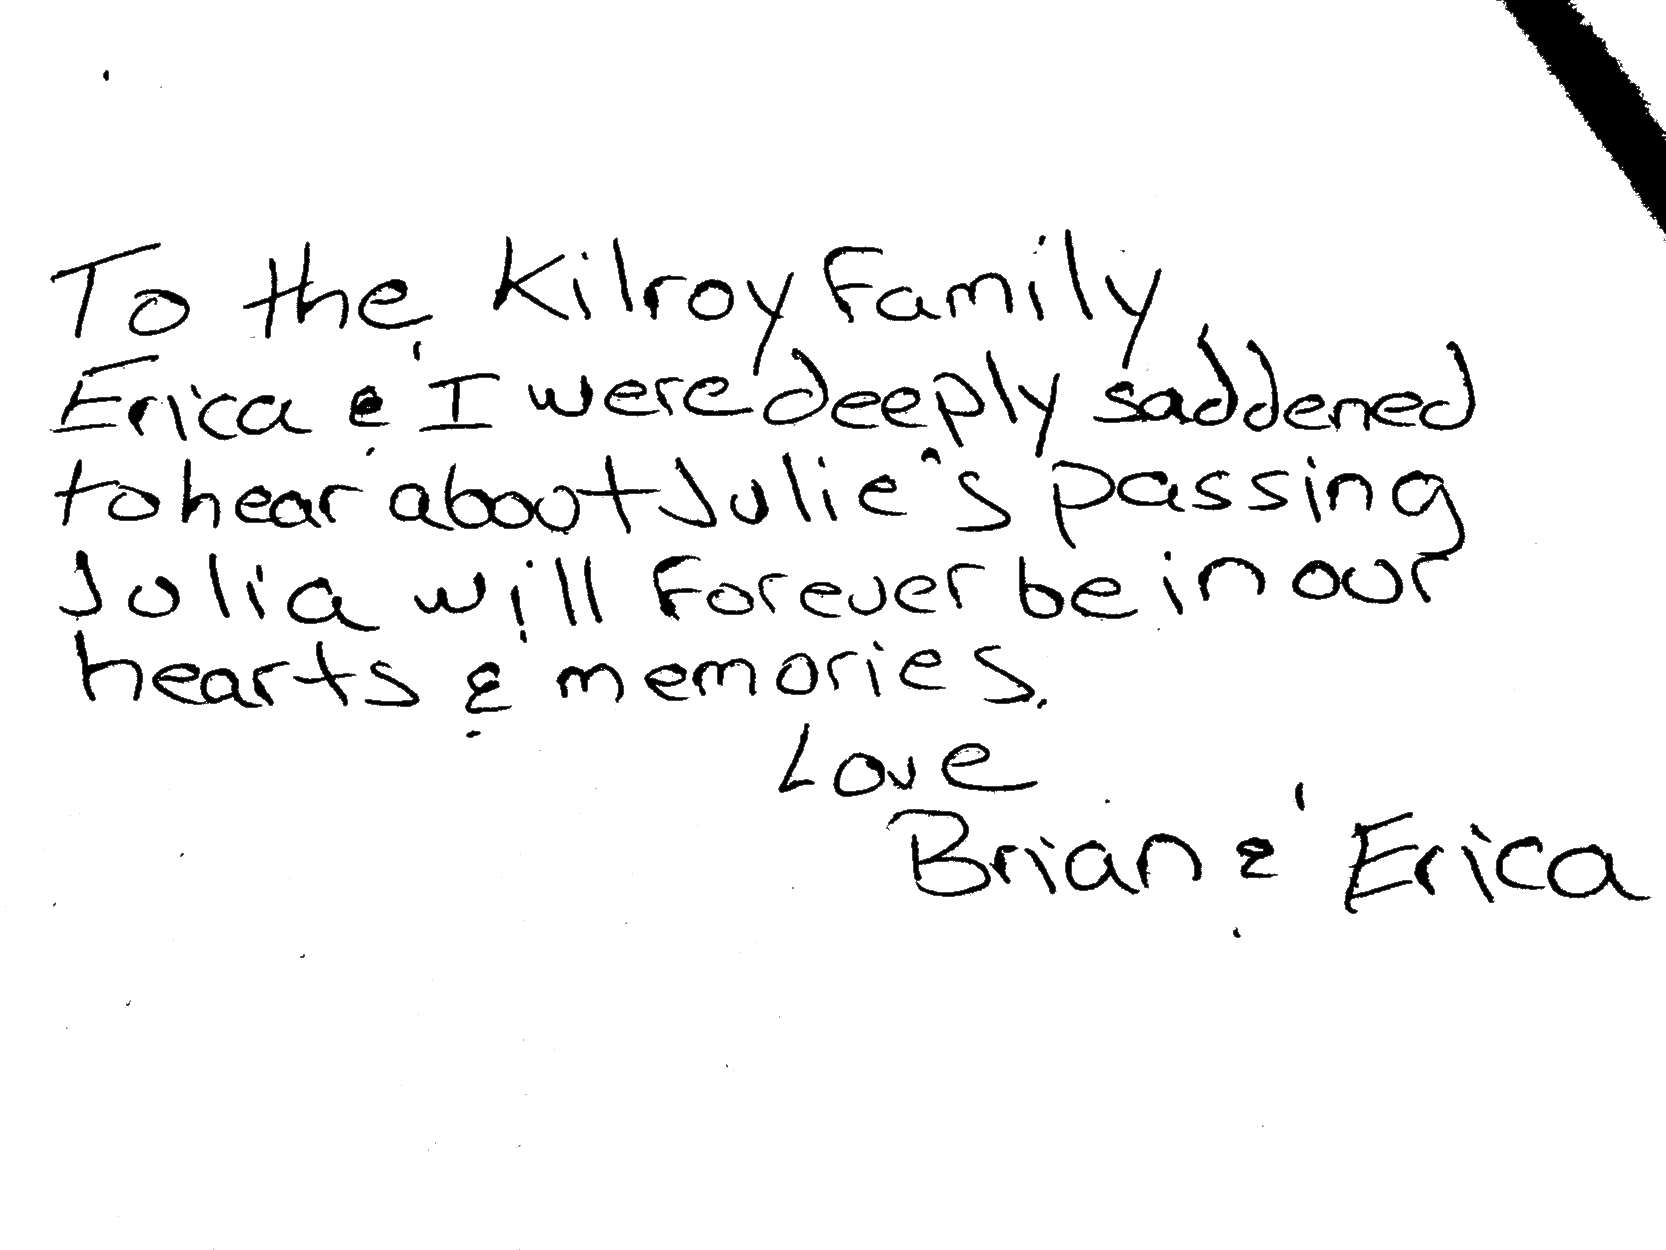 To the Kilroy Family
Erica & I were deeply saddened
to hear about Julie's passing
Julia will forever be in our
hearts & memories.
Love
Brian & Erica